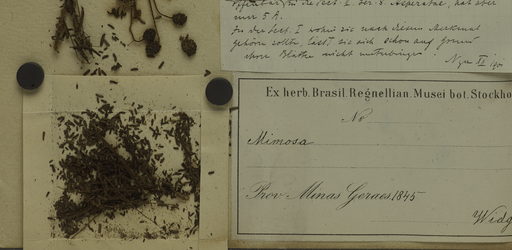 der Sect. I. der 8. Asperatae, hat aber
nur 5 A.
In der Sect. I wohin sie nach diesem Merkmal
gehören sollte, lässt sie sich schon auf Grund
ihrer Blätter nicht unterbringen
Ex herb. Brasil. Regnellian. Musei bot. Stockho
No
Mimosa
Prov. Minas Geraes, 1845
Widg